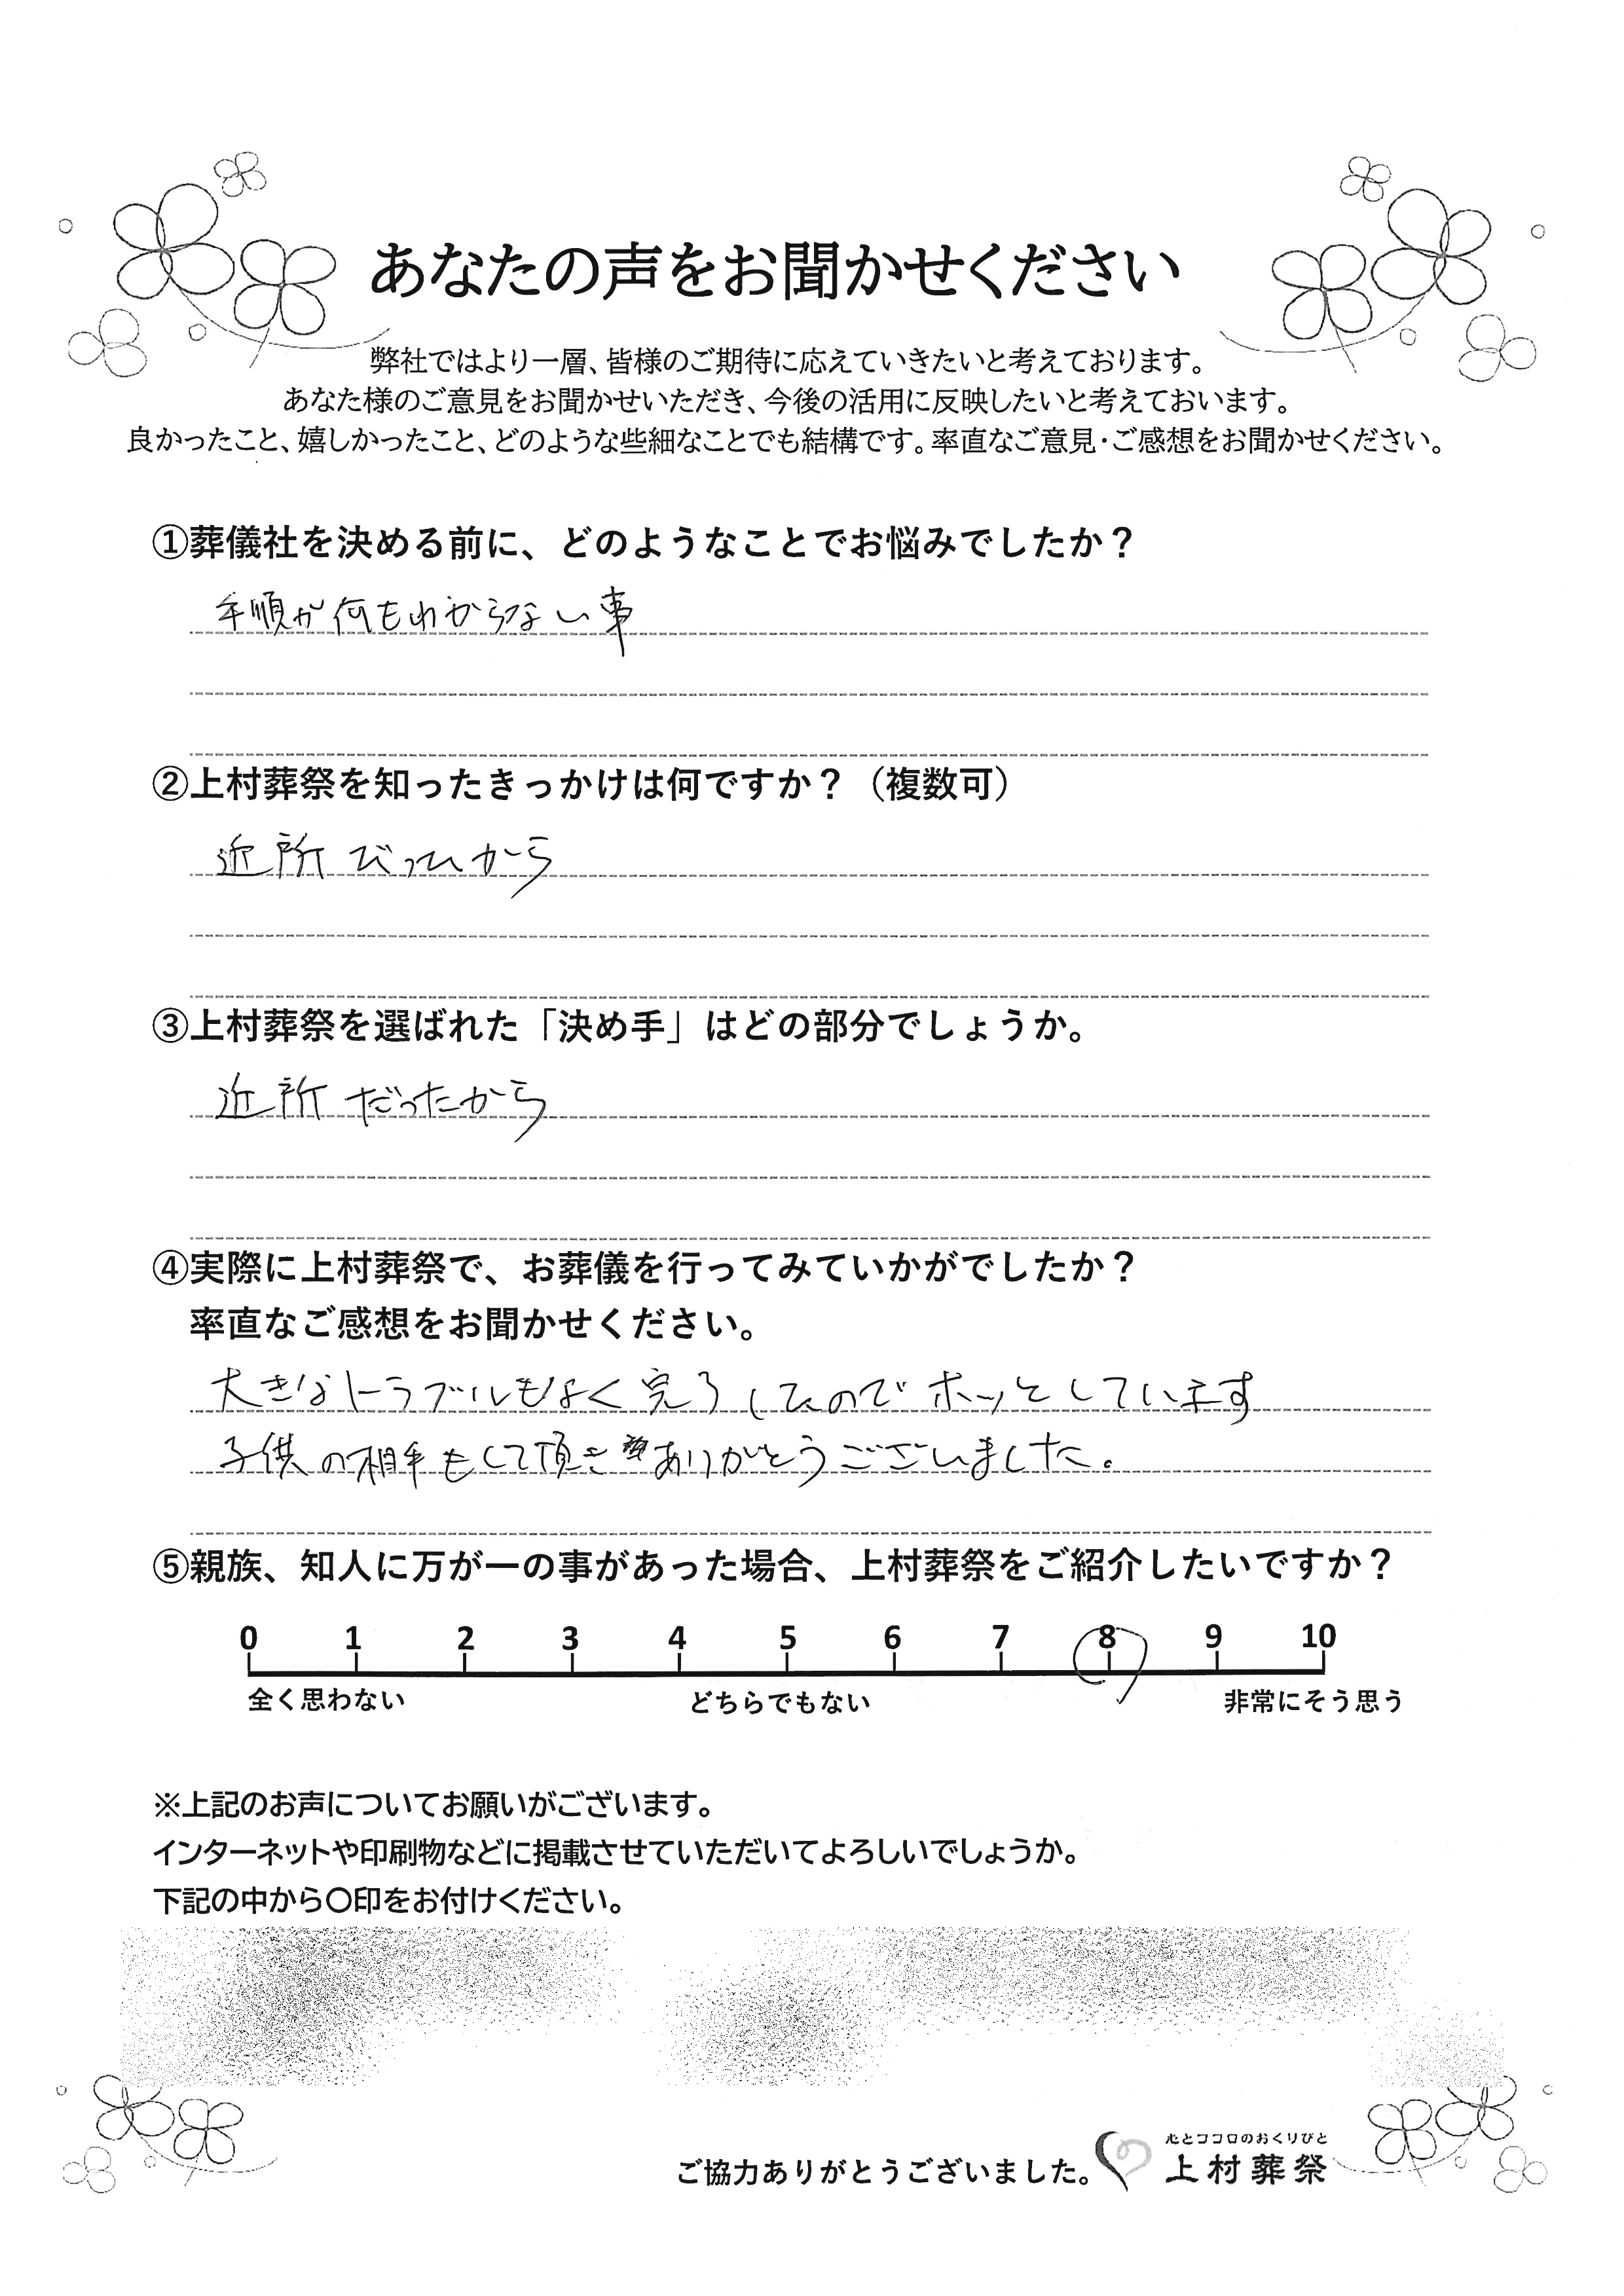 あなたの声をお聞かせください
弊社ではより一層、皆様のご期待に応えていきたいと考えております。
あなた様のご意見をお聞かせいただき、今後の活用に反映したいと考えておいます。
良かったこと、嬉しかったこと、どのような些細なことでも結構です。率直なご意見・ご感想をお聞かせください。
①葬儀社を決める前に、どのようなことでお悩みでしたか？
手順が何もわからない事
②上村葬祭を知ったきっかけは何ですか？（複数可）
近所だったから
③上村葬祭を選ばれた「決め手」はどの部分でしょうか。
近所だったから
④実際に上村葬祭で、お葬儀を行ってみていかがでしたか？
率直なご感想をお聞かせください。
大きなトラブルもなく完了したのでホッとしています
子供の相手もして頂きありがとうございました。
⑤親族、知人に万が一の事があった場合、上村葬祭をご紹介したいですか？
0 1 2 3 4 5 6 7 8 9 10
全く思わない どちらでもない 非常にそう思う
※上記のお声についてお願いがございます。
インターネットや印刷物などに掲載させていただいてよろしいでしょうか。
下記の中から〇印をお付けください。
心とココロのおくりびと
ご協力ありがとうございました。上村葬祭